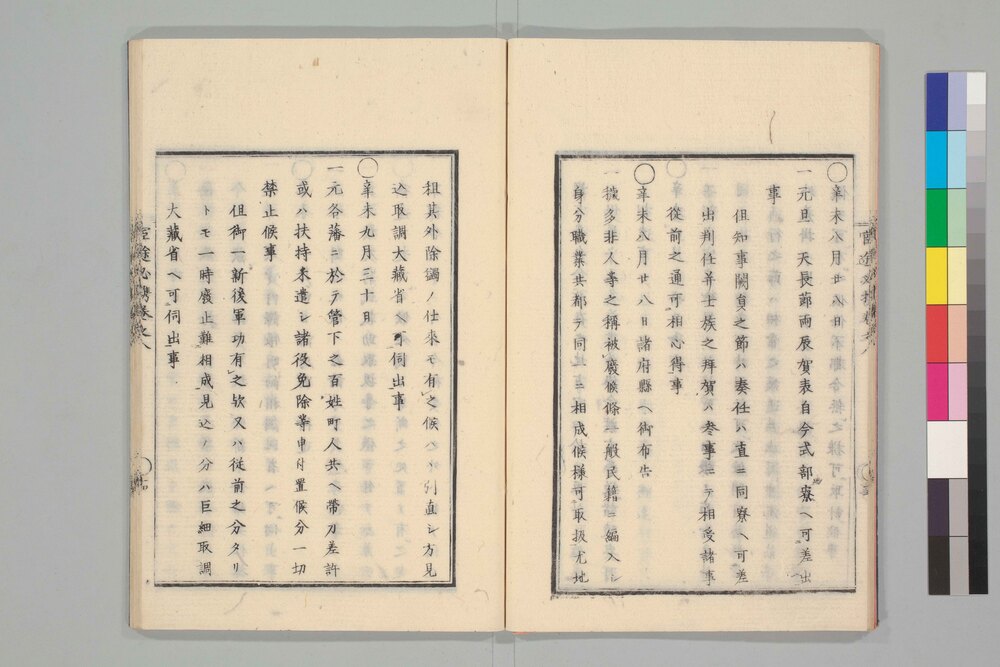 ◯辛未八月廿八日
一元旦天長節両辰賀表自今式部寮ヘ可差出
事
但知事闕員之節ハ奏任ハ直ニ同寮ヘ可差
出判任并士族之拜賀ハ参事ニテ相受諸事
従前之通可相心得事
◯辛未八月廿八日諸府縣ヘ御布告
一穢多非人等之稱被廢候條一般民籍ニ編入シ
身分職業共都テ同一ニ相成候様可取扱尤地
租其外除蠲ノ仕来モ有之候ハヽ引直シ方見
込取調大藏省ヘ可伺出事
◯辛未九月三十日
一元各藩ニ於テ管下之百姓町人共ヘ帶刀差許
或ハ扶持米遣シ諸役免除等申付置候分一切
禁止候事
但御一新後軍功有之欤又ハ従前之分タリ
トモ一時廢止難相成見込ノ分ハ巨細取調
大藏省ヘ可伺出事
官途必携巻之八